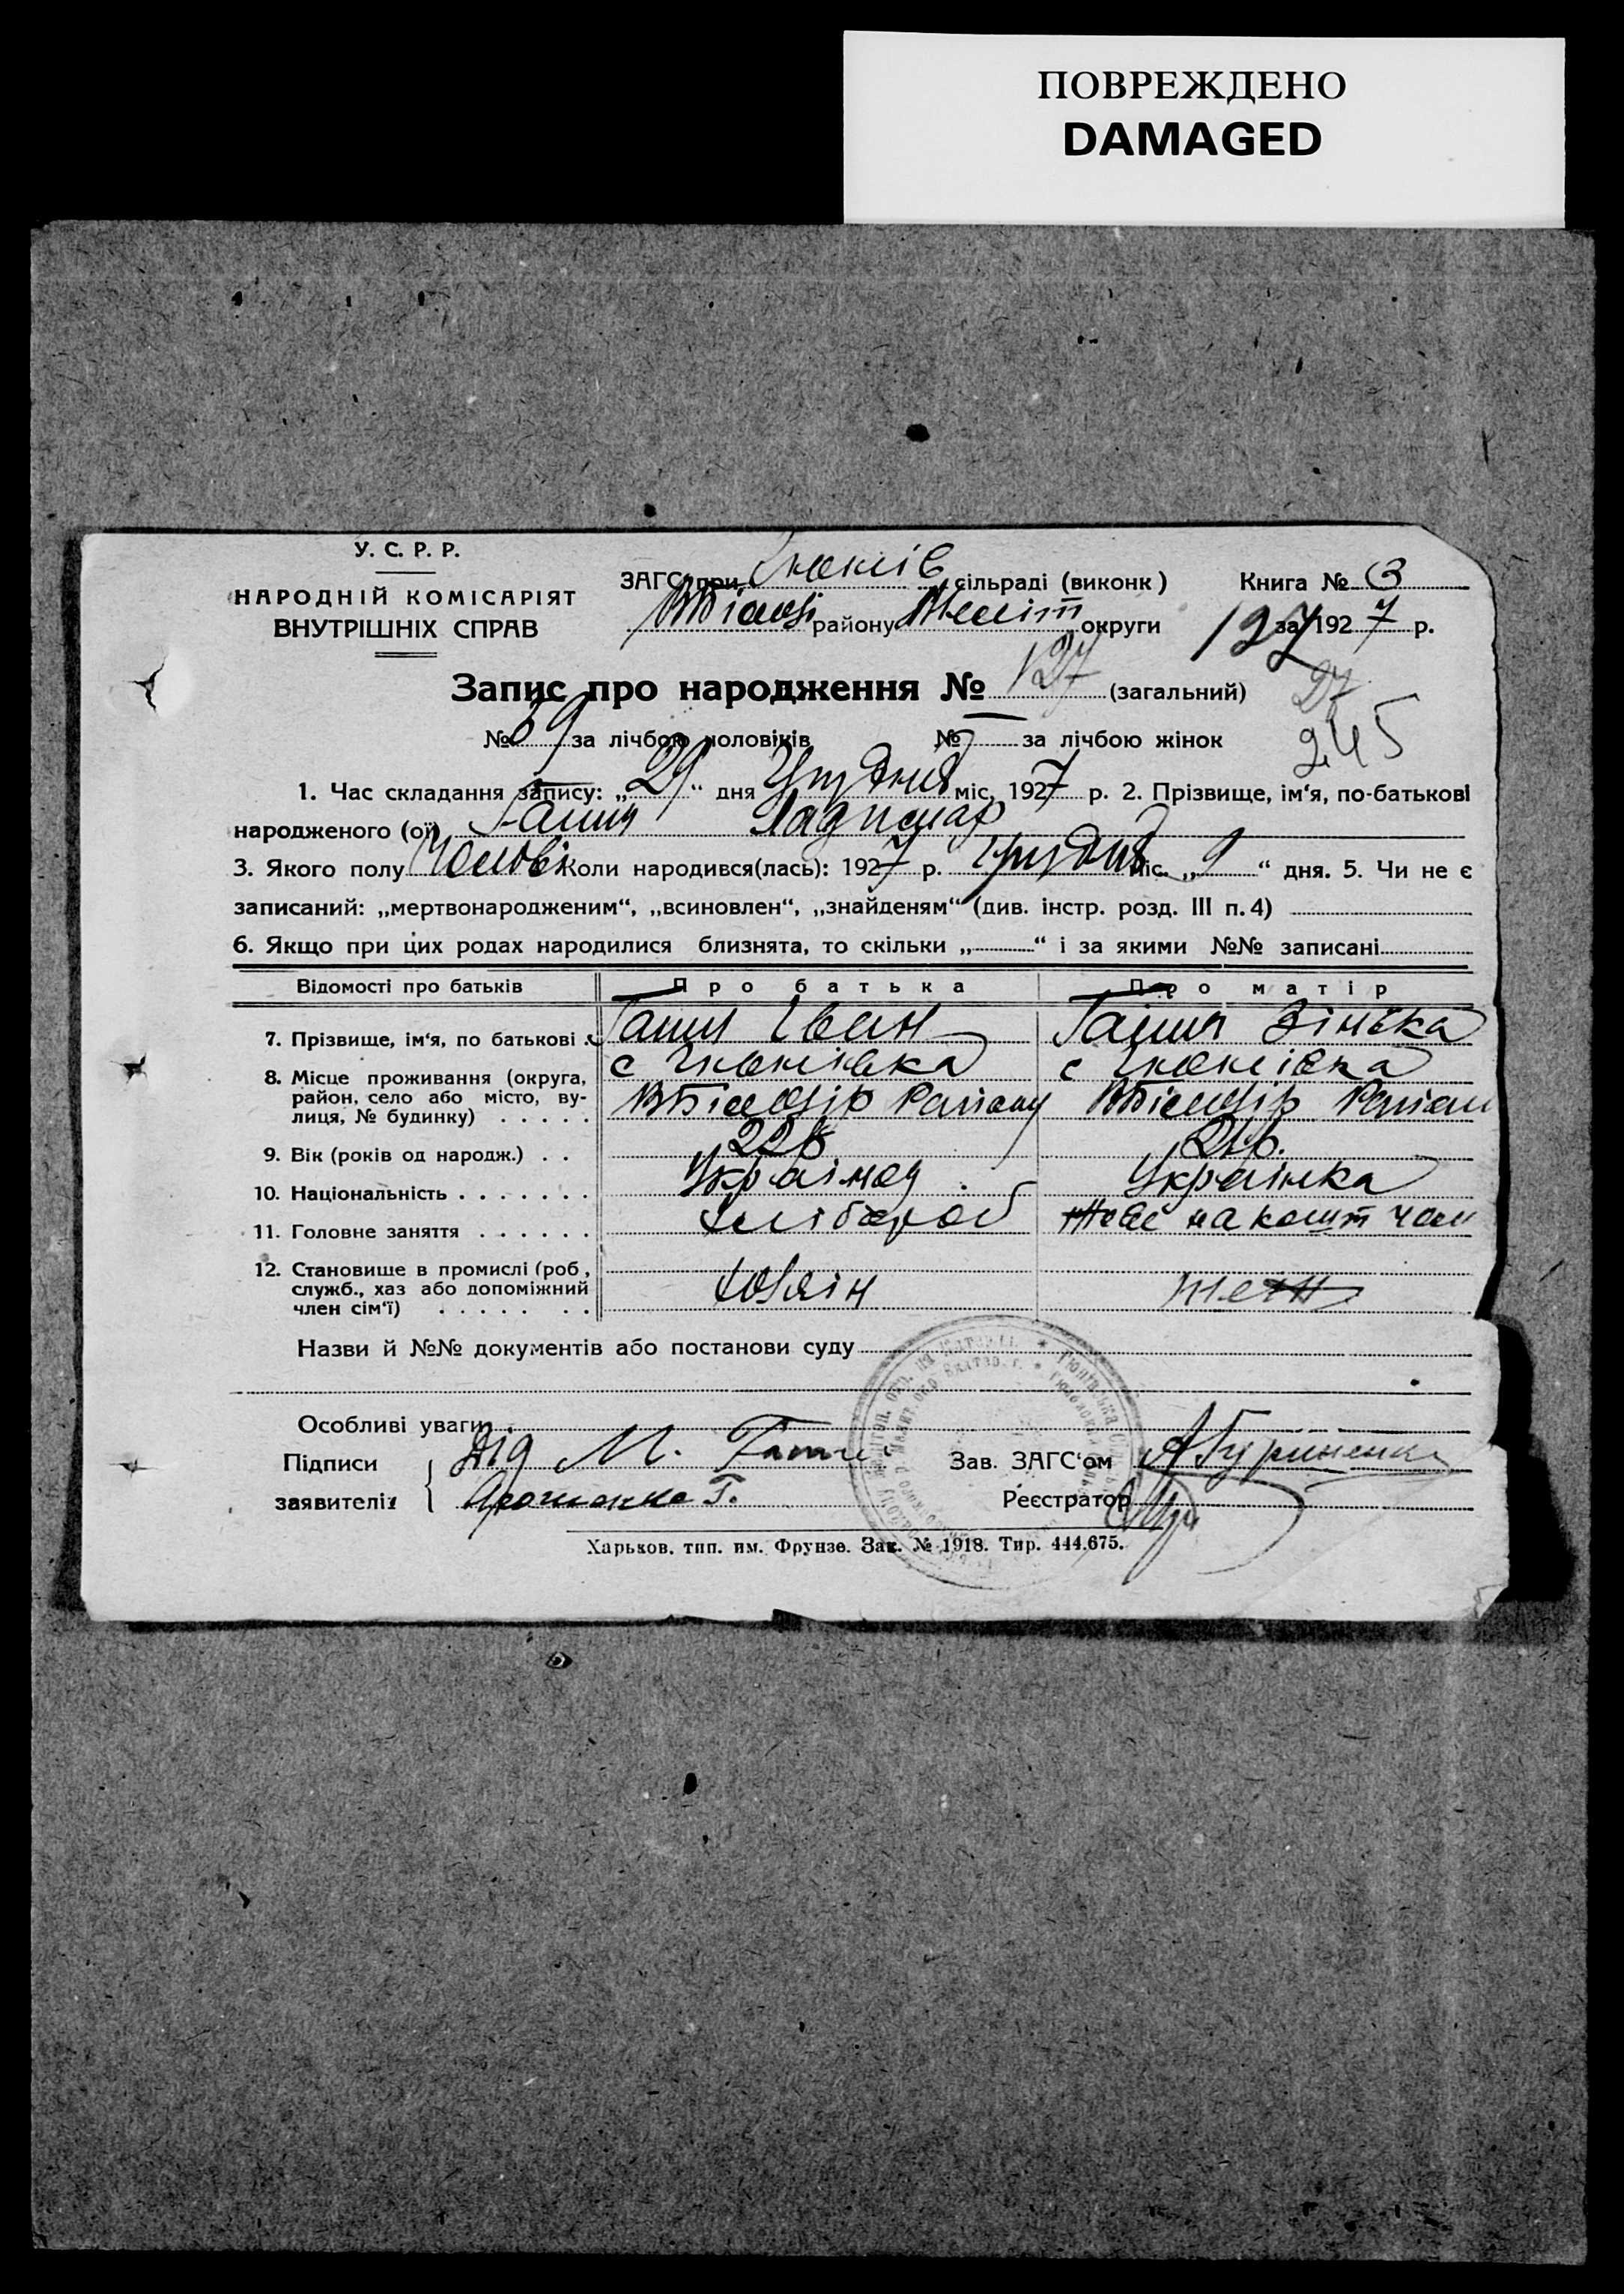 ПОВРЕЖДЕНО
DAMAGED
У. С. Р. Р.
НАРОДНІЙ КОМІСАРІЯТ
ВНУТРІШНІХ СПРАВ
ЗАГС при Гюнів сільраді (виконк) Книга № 3
району Меліт округи 127 за 1927 р.
Запис про народження № 127 (загальний) 27
№ 69 за лічбою чоловіків № — за лічбою жінок 245
1. Час складання запису: „29“ дня Грудня міс. 1927 р. 2. Прізвище, ім‘я, по-батькові
народженого (ої)
3. Якого полу Чоловік Коли народився(лась): 1927 р. Грудня міс. „9“ дня. 5. Чи не є
записаний: „мертвонародженим“, „всиновлен“, „знайденям“ (див. інстр. розд. III п. 4)
6. Якщо при цих родах народилися близнята, то скільки „ “ і за якими №№ записані
Відомості про батьків Про батька Про матір
7. Прізвище, ім‘я, по батькові Іван Зінька
8. Місце проживання (округа, с Гюнівка с Гюнівка
район, село або місто, ву-
лиця, № будинку) ВБілозір Району ВБілозір Району
9. Вік (років од народж.) 22р 21р.
10. Національність Українец Українка
11. Головне заняття Хлібороб Живе на кошт чол
12. Становище в промислі (роб,
служб., хаз або допоміжний Хозяін
член сім‘ї)
Назви й №№ документів або постанови суду
Особливі уваги
Підписи Дід М. Зав. ЗАГС‘ом
заявителів Реєстратор
Харьков, тип. им. Фрунзе. Зак. № 1918. Тир. 444.675.